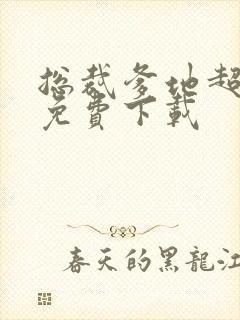 总裁爹地超
免費下載
春天的黑龍江